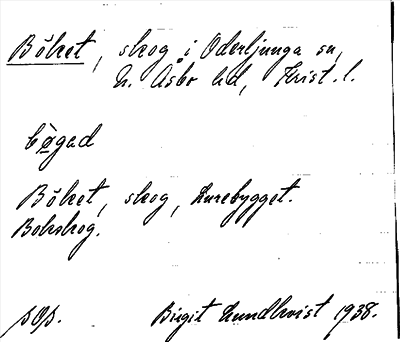 Böket, skog i Oderljunga sn,
N. Åsbo hd, Krist. l.
bø̀gad
Böket, skog, Lurebygget.
Bokskog.
sOp. Birgit Lundkvist 1938.